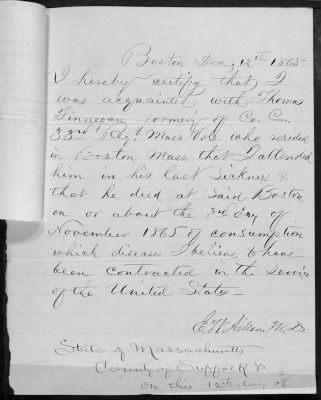 Boston Dec, 12th 1865
I hereby certify that I
was acquainted with Thomas
Finnegan formerly of Co. C.
33rd Reg, Mass Vols who resided
in Boston Mass, that I attended
him in his last Sickness &
that he died at said Boston
on or about the 3rd day of
November 1865 of consumption
which disease I believe to have
been contracted in the service
of the United States
M.D
State of Massachusetts
County of Suffolk SS
On this 12th day of